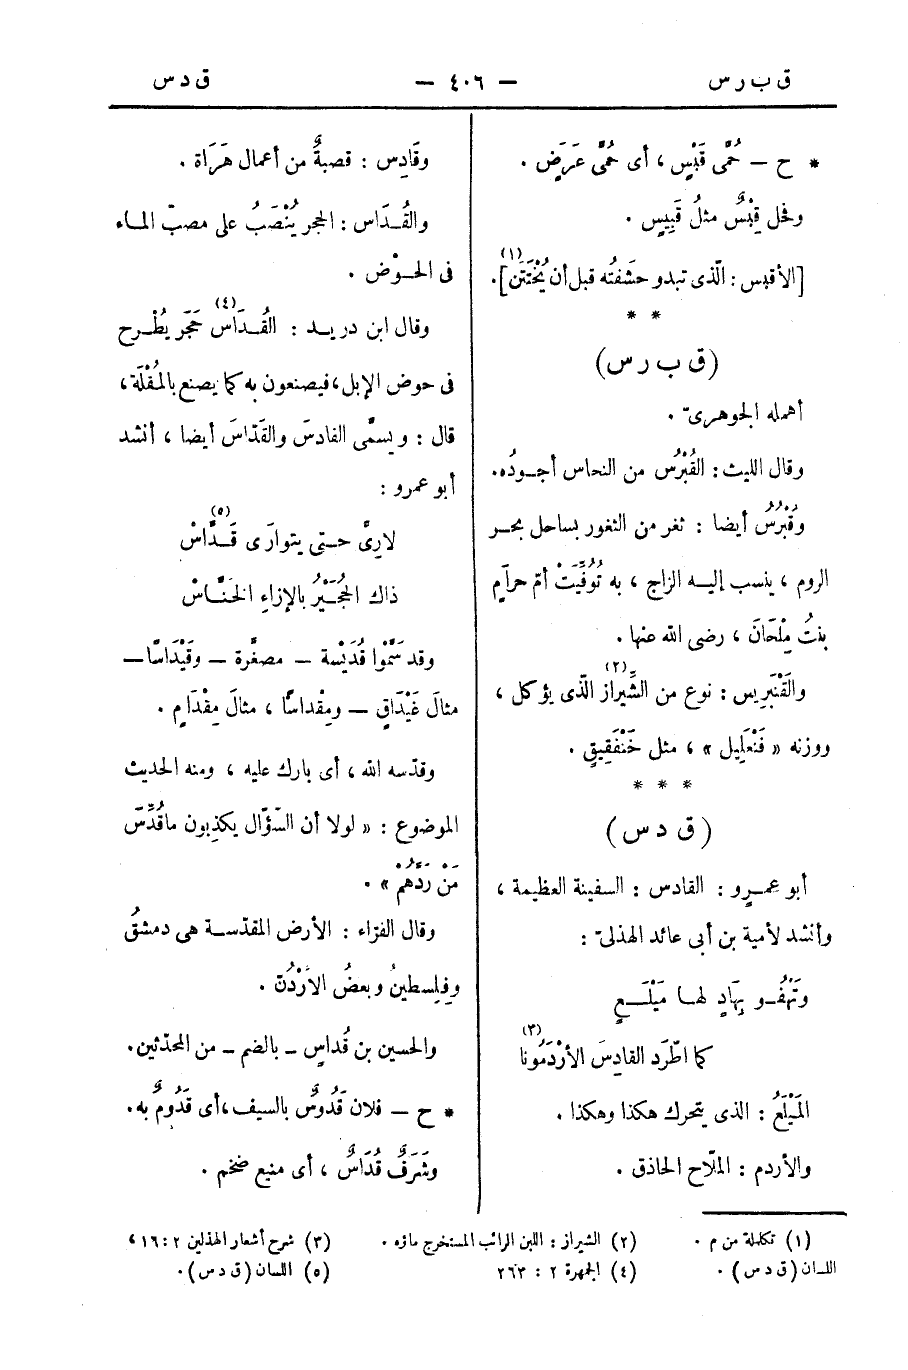 ق ب ر س — ٤٠٦ — ق د س
* ح — حُمَّى قَبَسٍ ، أى حُمَّى عَرَضٍ .
وفحل قَبْسٌ مثلُ قَبِيسٍ .
[الأقبس : الّذى تبدو حشفتُه قبل أن يُخْتَتَن](١).
* *
( ق ب ر س )
أهمله الجوهرىّ .
وقال الليث : القُبْرُس من النحاس أجـودُه .
وقُبْرُسُ أيضا : ثغر من الثغور بساحل بحـر
الروم ، ينسب إليـه الزاج ، به تُوُفِّيَتْ أمّ حرامٍ
بنتُ مِلْحَانَ ، رضى الله عنها .
والقَنْبَرِيس : نوع من الشِّيراز(٢) الّذى يؤكل ،
ووزنه « فَنْعَلِيل » ، مثل خَنْفَقِيقٍ .
* * *
( ق د س )
أبو عمـرٍو : القادس : السفينة العظيمة ،
وأنشد لأمية بن أبى عائد الهذلىّ :
وتَهْفُـو بِهَادٍ لهـا مَيْلَـعٍ
كما اطّرَد القادِسَ الأرْدَمُونا(٣)
المَيْلَعُ : الذى يتحرك هكذا وهكذا .
والأردم : الملّاح الحاذق .
وقَادِس : قصبةٌ من أعمال هَرَاة .
والقُـدَاس : الحجر يُنْصَبُ على مصبّ المـاء
فى الحـوْض .
وقال ابن دريـد : القُـدَاس(٤) حَجَر يُطْـرح
فى حوض الإبل ، فيصنعون به كما يصنع بالمُقْلَة ،
قال : ويسمَّى القادسَ والقَدّاسَ أيضا ، أنشد
أبو عمرو :
لارِىَّ حـتى يتوارَى قَـدَّاسْ(٥)
ذاك الحُجَيْرُ بالإزاءِ الخَنَّـاسْ
وقد سَمَّوا قُدَيْسة — مصغَّرة — وقَيْدَاسًا —
مثالَ غَيْدَاقٍ — ومِقْداسًا ، مثالَ مِقْدَامٍ .
وقدّسه الله ، أى بارك عليه ، ومنه الحديث
الموضوع : « لولا أن السُّؤّال يكذبون ماقُدِّسَ
مَنْ رَدَّهُمْ » .
وقال الفرّاء : الأرض المقدّسـة هى دمشقُ
وفِلسطينُ وبعضُ الأرْدُنّ .
والحسين بن قُداسٍ — بالضم — من المحدّثين .
* ح — فلان قَدُوسٌ بالسيف ، أى قَدُومٌ به .
وشَرَفٌ قُدَاسٌ ، أى منيع ضخم .
(١) تكملة من م .
(٢) الشيراز : اللبن الرائب المستخرج ماؤه .
(٣) شرح أشعار الهذلين ٢ : ٥١٦ ،
اللسان ( ق د س ) .
(٤) الجمهرة ٢ : ٢٦٣
(٥) اللسان ( ق د س ) .